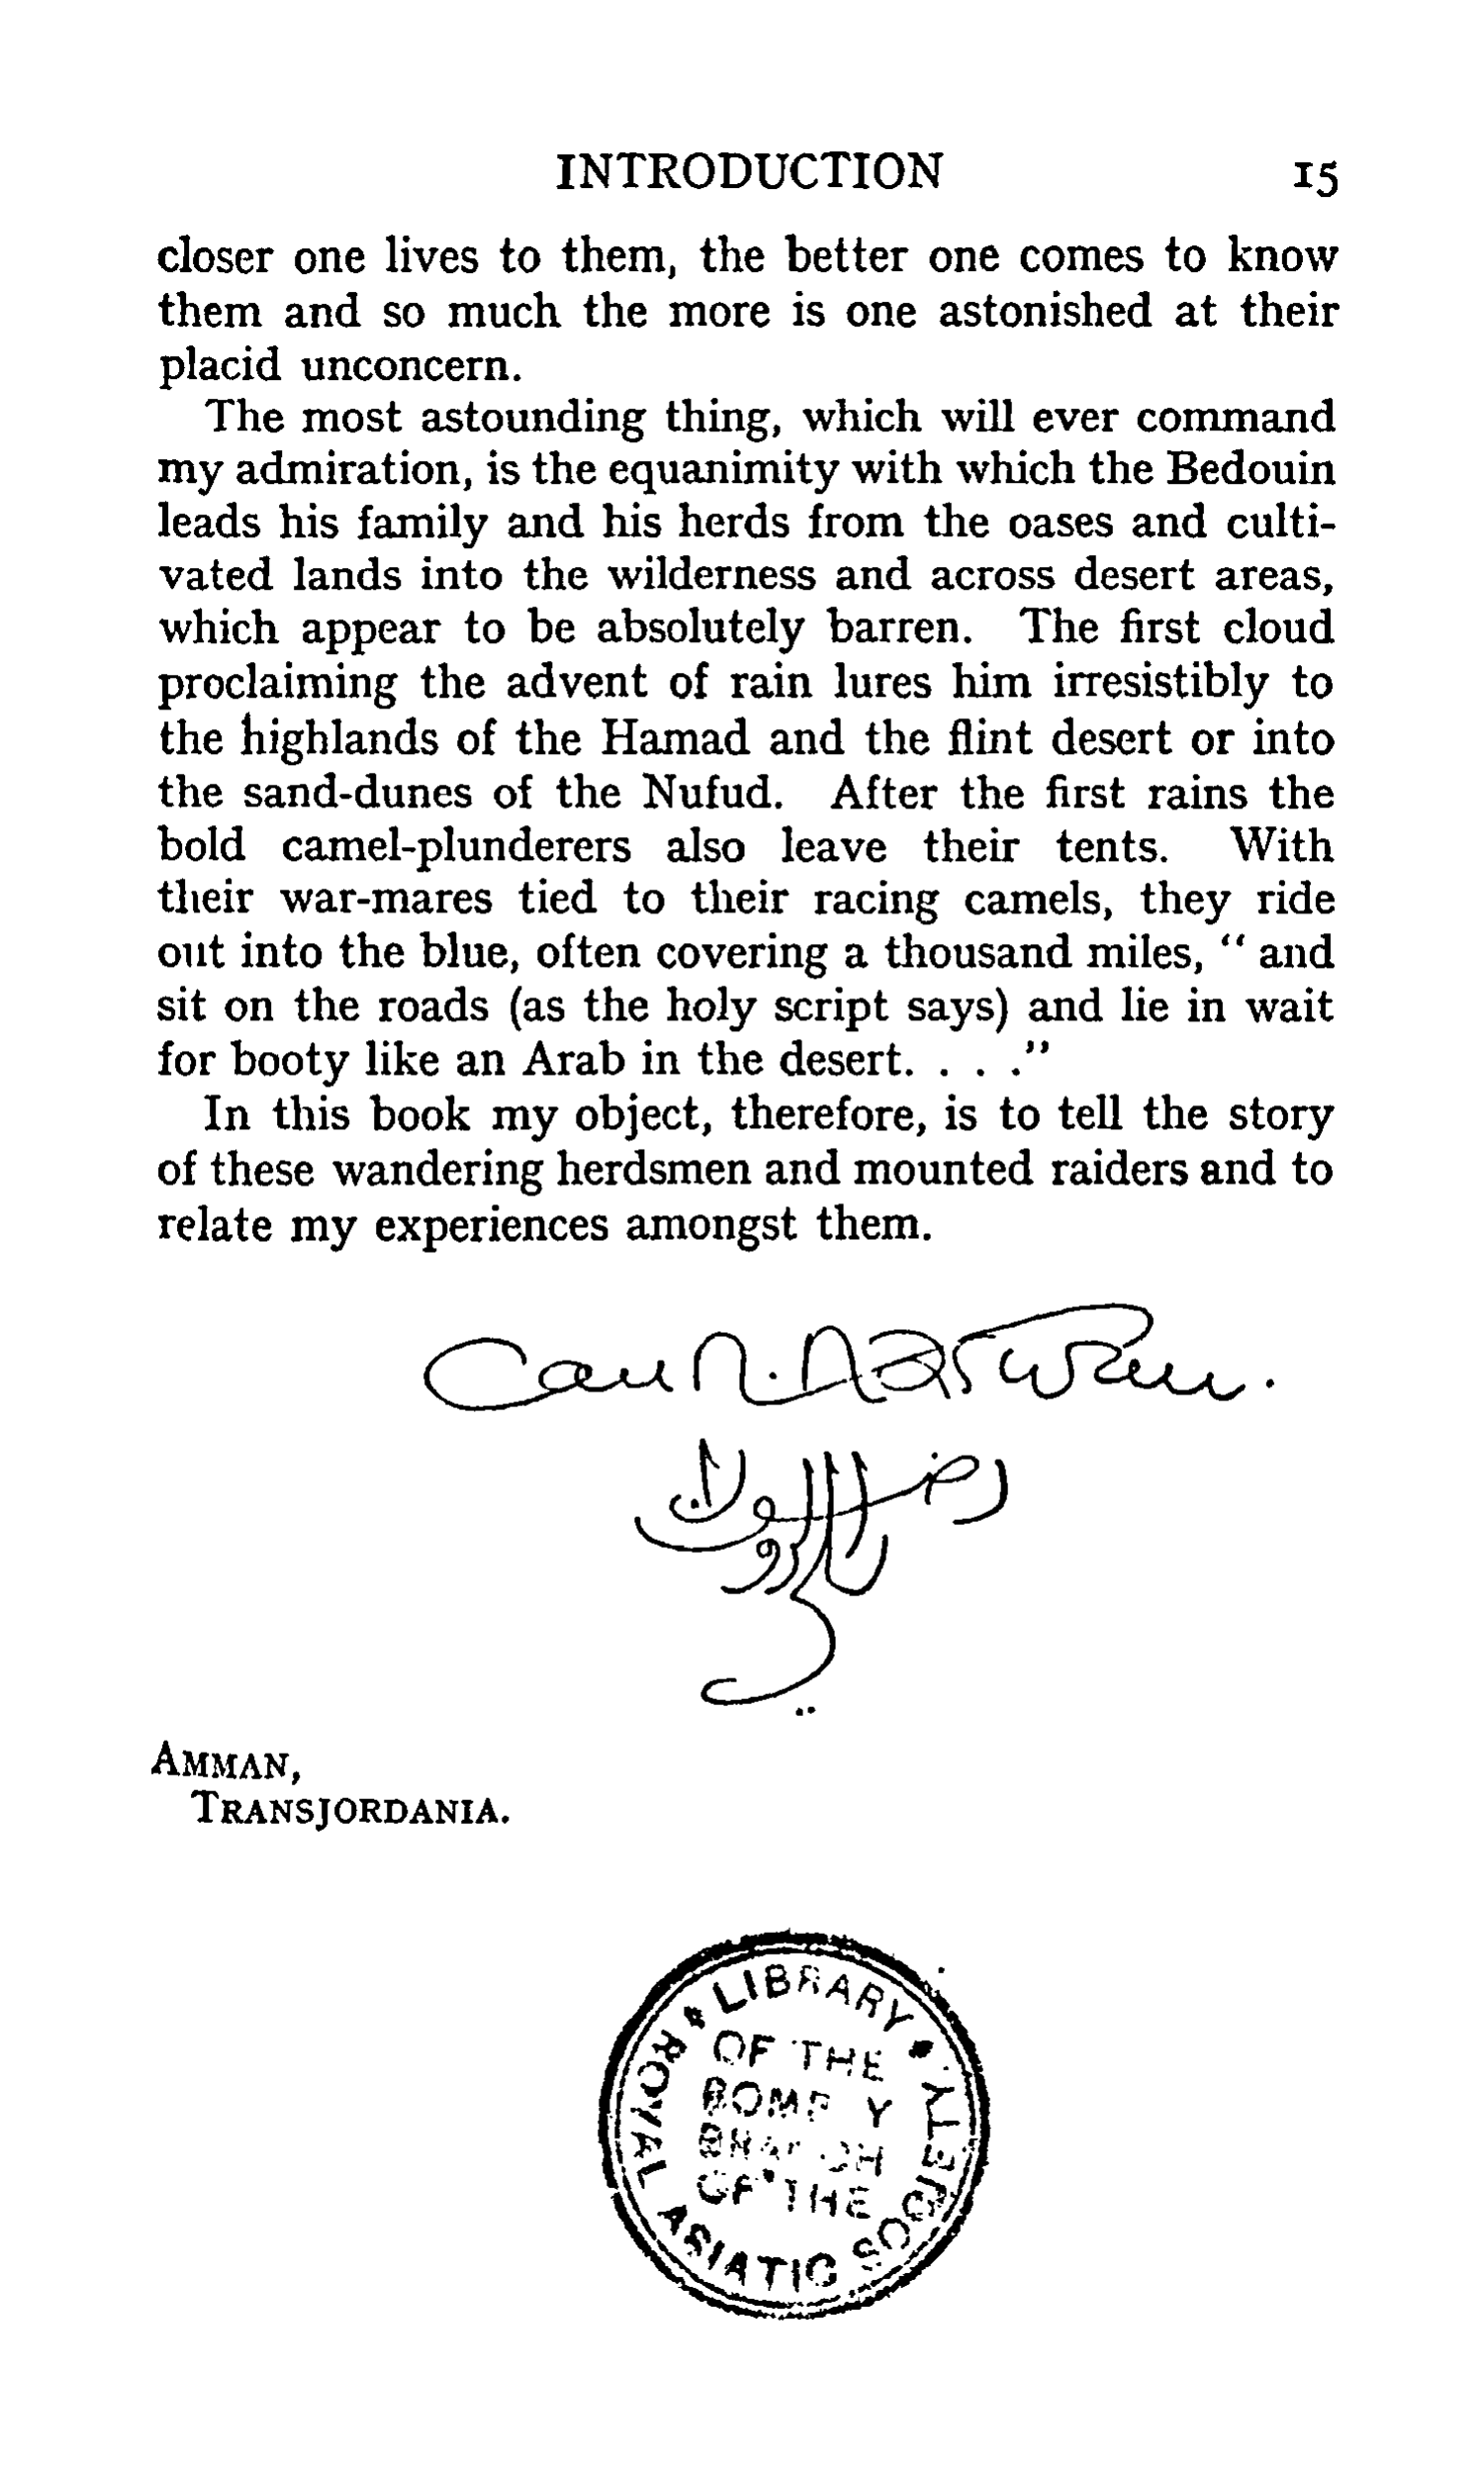 INTRODUCTION 15
closer one lives to them, the better one comes to know
them and so much the more is one astonished at their
placid unconcern.
The most astounding thing, which will ever command
my admiration, is the equanimity with which the Bedouin
leads his family and his herds from the oases and culti-
vated lands into the wilderness and across desert areas,
which appear to be absolutely barren. The first cloud
proclaiming the advent of rain lures him irresistibly to
the highlands of the Hamad and the flint desert or into
the sand-dunes of the Nufud. After the first rains the
bold camel-plunderers also leave their tents. With
their war-mares tied to their racing camels, they ride
out into the blue, often covering a thousand miles, “ and
sit on the roads (as the holy script says) and lie in wait
for booty like an Arab in the desert. . . .”
In this book my object, therefore, is to tell the story
of these wandering herdsmen and mounted raiders and to
relate my experiences amongst them.
AMMAN,
TRANSJORDANIA.
LIBRARY
OF THE
BOMBAY
BRANCH
OF THE
ROYAL ASIATIC SOCIETY